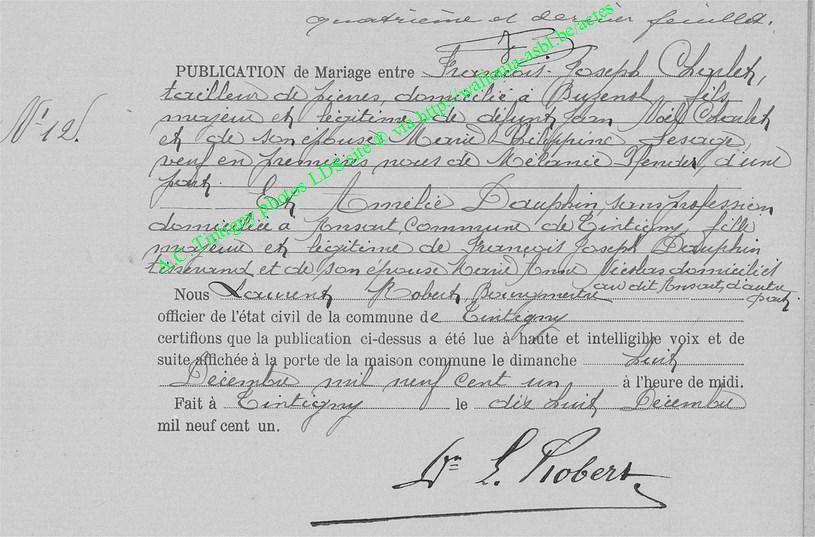 quatrième et dernier feuillet.
N° 12.
PUBLICATION de Mariage entre François Joseph Charlet,
tailleur de pierres domicilié à Buzenol, fils
majeur et légitime de défunt Jean Noël Charlet
et de son épouse Marie Philippine Lesage,
veuf en premières noces de Mélanie d'une
part.
Et Amélie Dauphin, sans profession
domiciliée à Ansart, Commune de Tintigny, fille
majeure et légitime de François Joseph Dauphin
tisserand, et de son épouse Marie Anne Nicolas domiciliés
au dit Ansart, d'autre part.
Nous Laurent Robert, Bourgmestre
officier de l'état civil de la commune de Tintigny
certifions que la publication ci-dessus a été lue à haute et intelligible voix et de
suite affichée à la porte de la maison commune le dimanche huit
Décembre mil neuf cent un à l'heure de midi.
Fait à Tintigny le dix huit Décembre
mil neuf cent un.
L. Robert
A.C. Tintigny photos LDS site © via http://wallonia-asbl.be/actes